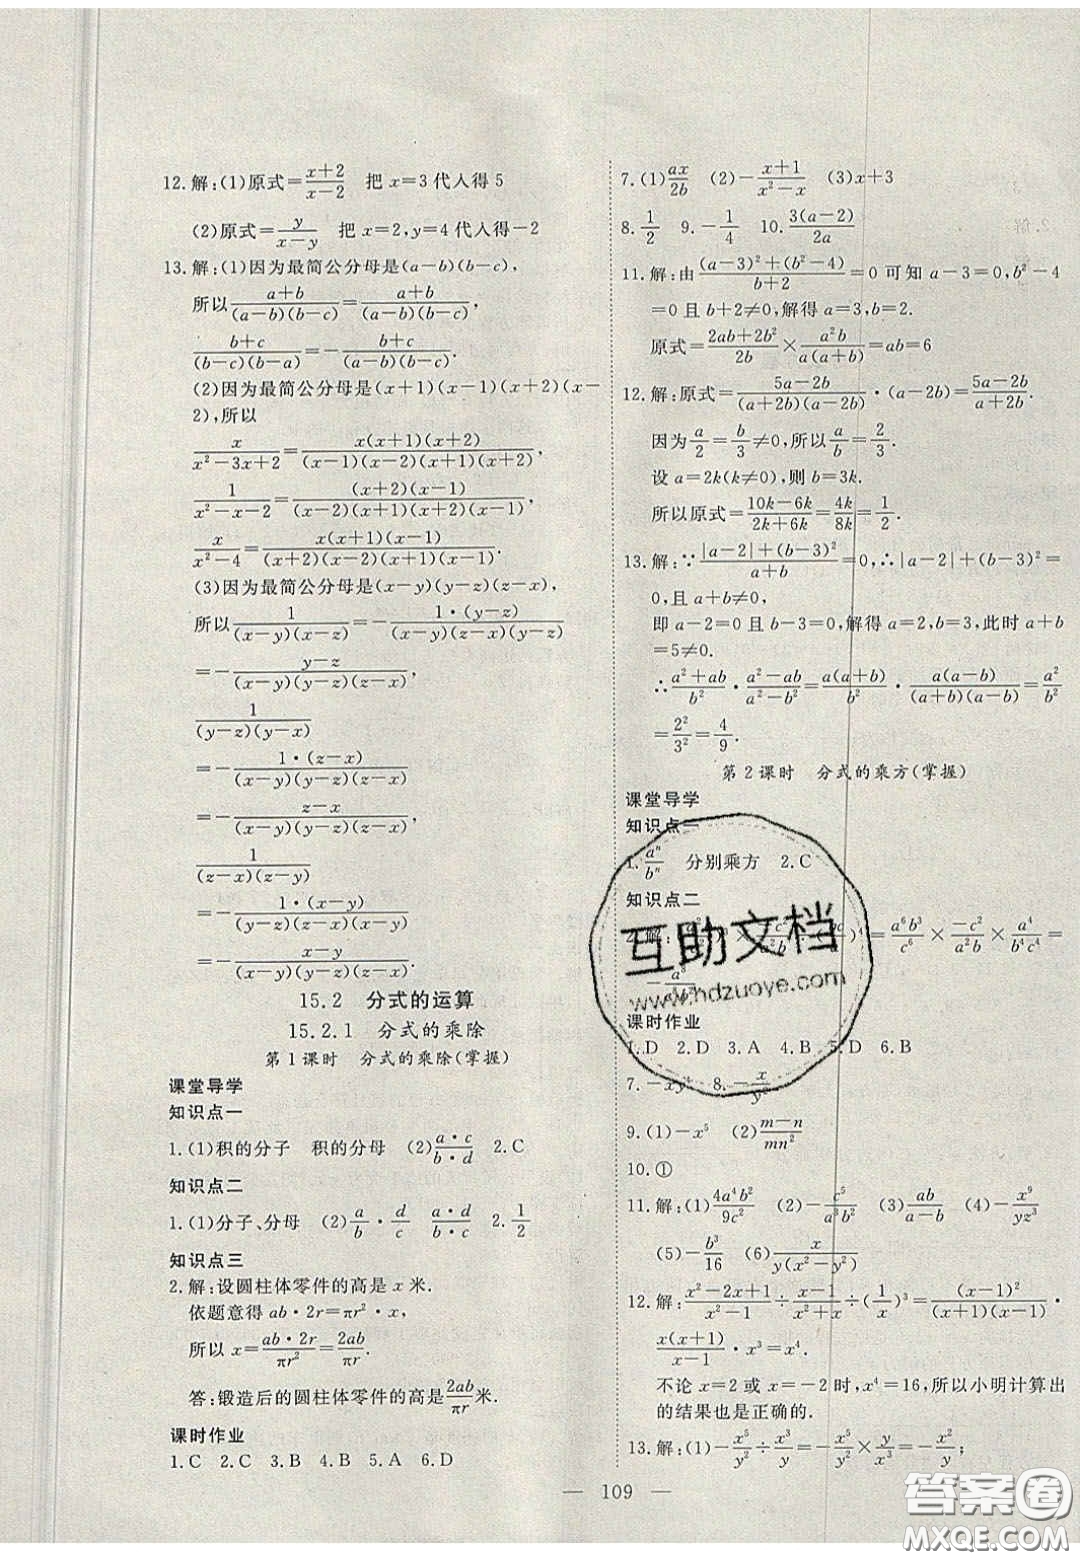 12.解:(1)原式=\frac{x+2}{x-2} 把 x=3代人得5
(2)原式=\frac{y}{x-y} 把 x=2,y=4代人得-2
13.解:(1)因为最简公分母是(a-b)(b-c),
所以\frac{a+b}{(a-b)(b-c)}=\frac{a+b}{(a-b)(b-c)},
\frac{b+c}{(b-c)(b-a)}=-\frac{b+c}{(a-b)(b-c)}.
(2)因为最简公分母是(x+1)(x-1)(x+2)(x-
2),所以
\frac{x}{x²-3x+2}=\frac{x(x+1)(x+2)}{(x-1)(x-2)(x+1)(x+2)},
\frac{1}{x²-x-2}=\frac{(x+2)(x-1)}{(x-2)(x+1)(x+2)(x-1)},
\frac{x}{x²-4}=\frac{x(x+1)(x-1)}{(x+2)(x-2)(x+1)(x-1)}.
(3)因为最简公分母是(x-y)(y-z)(z-x),
所以\frac{1}{(x-y)(x-z)}=-\frac{1·(y-z)}{(x-y)(z-x)(y-z)}
=-\frac{y-z}{(x-y)(y-z)(z-x)}
\frac{1}{(y-z)(y-x)}
=-\frac{1·(z-x)}{(x-y)(y-z)(z-x)}
=-\frac{z-x}{(x-y)(y-z)(z-x)}
\frac{1}{(z-x)(z-y)}
=-\frac{1·(x-y)}{(y-z)(z-x)(x-y)}
=-\frac{x-y}{(x-y)(y-z)(z-x)}
15.2 分式的运算
15.2.1 分式的乘除
第1课时 分式的乘除(掌握)
课堂导学
知识点一
1.(1)积的分子 积的分母 (2)\frac{a·c}{b·d} 2.C
知识点二
1.(1)分子、分母 (2)\frac{a}{b}·\frac{d}{c} \frac{a·d}{b·c} 2.\frac{1}{2}
知识点三
2.解:设圆柱体零件的高是 x 米.
依题意得 ab·2r=πr²·x,
所以 x=\frac{ab·2r}{πr²}=\frac{2ab}{πr}.
答:锻造后的圆柱体零件的高是\frac{2ab}{πr}米.
课时作业
1.C 2.C 3.C 4.B 5.A 6.D
7.(1)\frac{ax}{2b} (2)-\frac{x+1}{x²-x} (3)x+3
8.\frac{1}{2} 9.-\frac{1}{4} 10.\frac{3(a-2)}{2a}
11.解:由\frac{(a-3)²+(b²-4)}{b+2}=0 可知 a-3=0,b²-4
=0且 b+2≠0,解得 a=3,b=2.
原式=\frac{2ab+2b²}{2b}×\frac{a²b}{a(a+b)}=ab=6
12.解:原式=\frac{5a-2b}{(a+2b)(a-2b)}·(a-2b)=\frac{5a-2b}{a+2b}.
因为\frac{a}{2}=\frac{b}{3}≠0,所以\frac{a}{b}=\frac{2}{3}.
设 a=2k(k≠0),则 b=3k.
所以原式=\frac{10k-6k}{2k+6k}=\frac{4k}{8k}=\frac{1}{2}.
13.解:∵\frac{|a-2|+(b-3)²}{a+b}=0,∴|a-2|+(b-3)²=
0,且 a+b≠0,
即 a-2=0且 b-3=0,解得 a=2,b=3,此时 a+b
=5≠0.
∴\frac{a²+ab}{b²}·\frac{a²-ab}{a²-b²}=\frac{a(a+b)}{b²}·\frac{a(a-b)}{(a+b)(a-b)}=\frac{a²}{b²}
=\frac{2²}{3²}=\frac{4}{9}.
第2课时 分式的乘方(掌握)
课堂导学
知识点一
1.\frac{aⁿ}{bⁿ} 分别乘方 2.C
知识点二
=\frac{a⁶b³}{c⁶}×\frac{-c²}{a²b}×\frac{a⁴}{b⁴c⁴}=
课时作业
1.D 2.D 3.A 4.B 5.D 6.B
8.-\frac{x}{y²}
9.(1)-x⁵ (2)\frac{m-n}{mn²}
10.①
11.解:(1)\frac{4a⁴b²}{9c²} (2)-\frac{c⁵}{a³b²} (3)\frac{ab}{a-b} (4)-\frac{x⁹}{yz³}
(5)-\frac{b³}{16} (6)\frac{x}{y(x²-y²)}
12.解:\frac{x²-2x+1}{x²-1}÷\frac{x-1}{x²+x}÷(\frac{1}{x})³=\frac{(x-1)²}{(x+1)(x-1)}·
\frac{x(x+1)}{x-1}·x³=x⁴.
不论 x=2 或 x=-2时,x⁴=16,所以小明计算出
的结果也是正确的.
13.解:(1)-\frac{x⁵}{y²}÷\frac{x³}{y}=-\frac{x⁵}{y²}×\frac{y}{x³}=-\frac{x²}{y};
— 109 —
互助文档
www.hdzuoye.com
答案圈
MXQE.COM